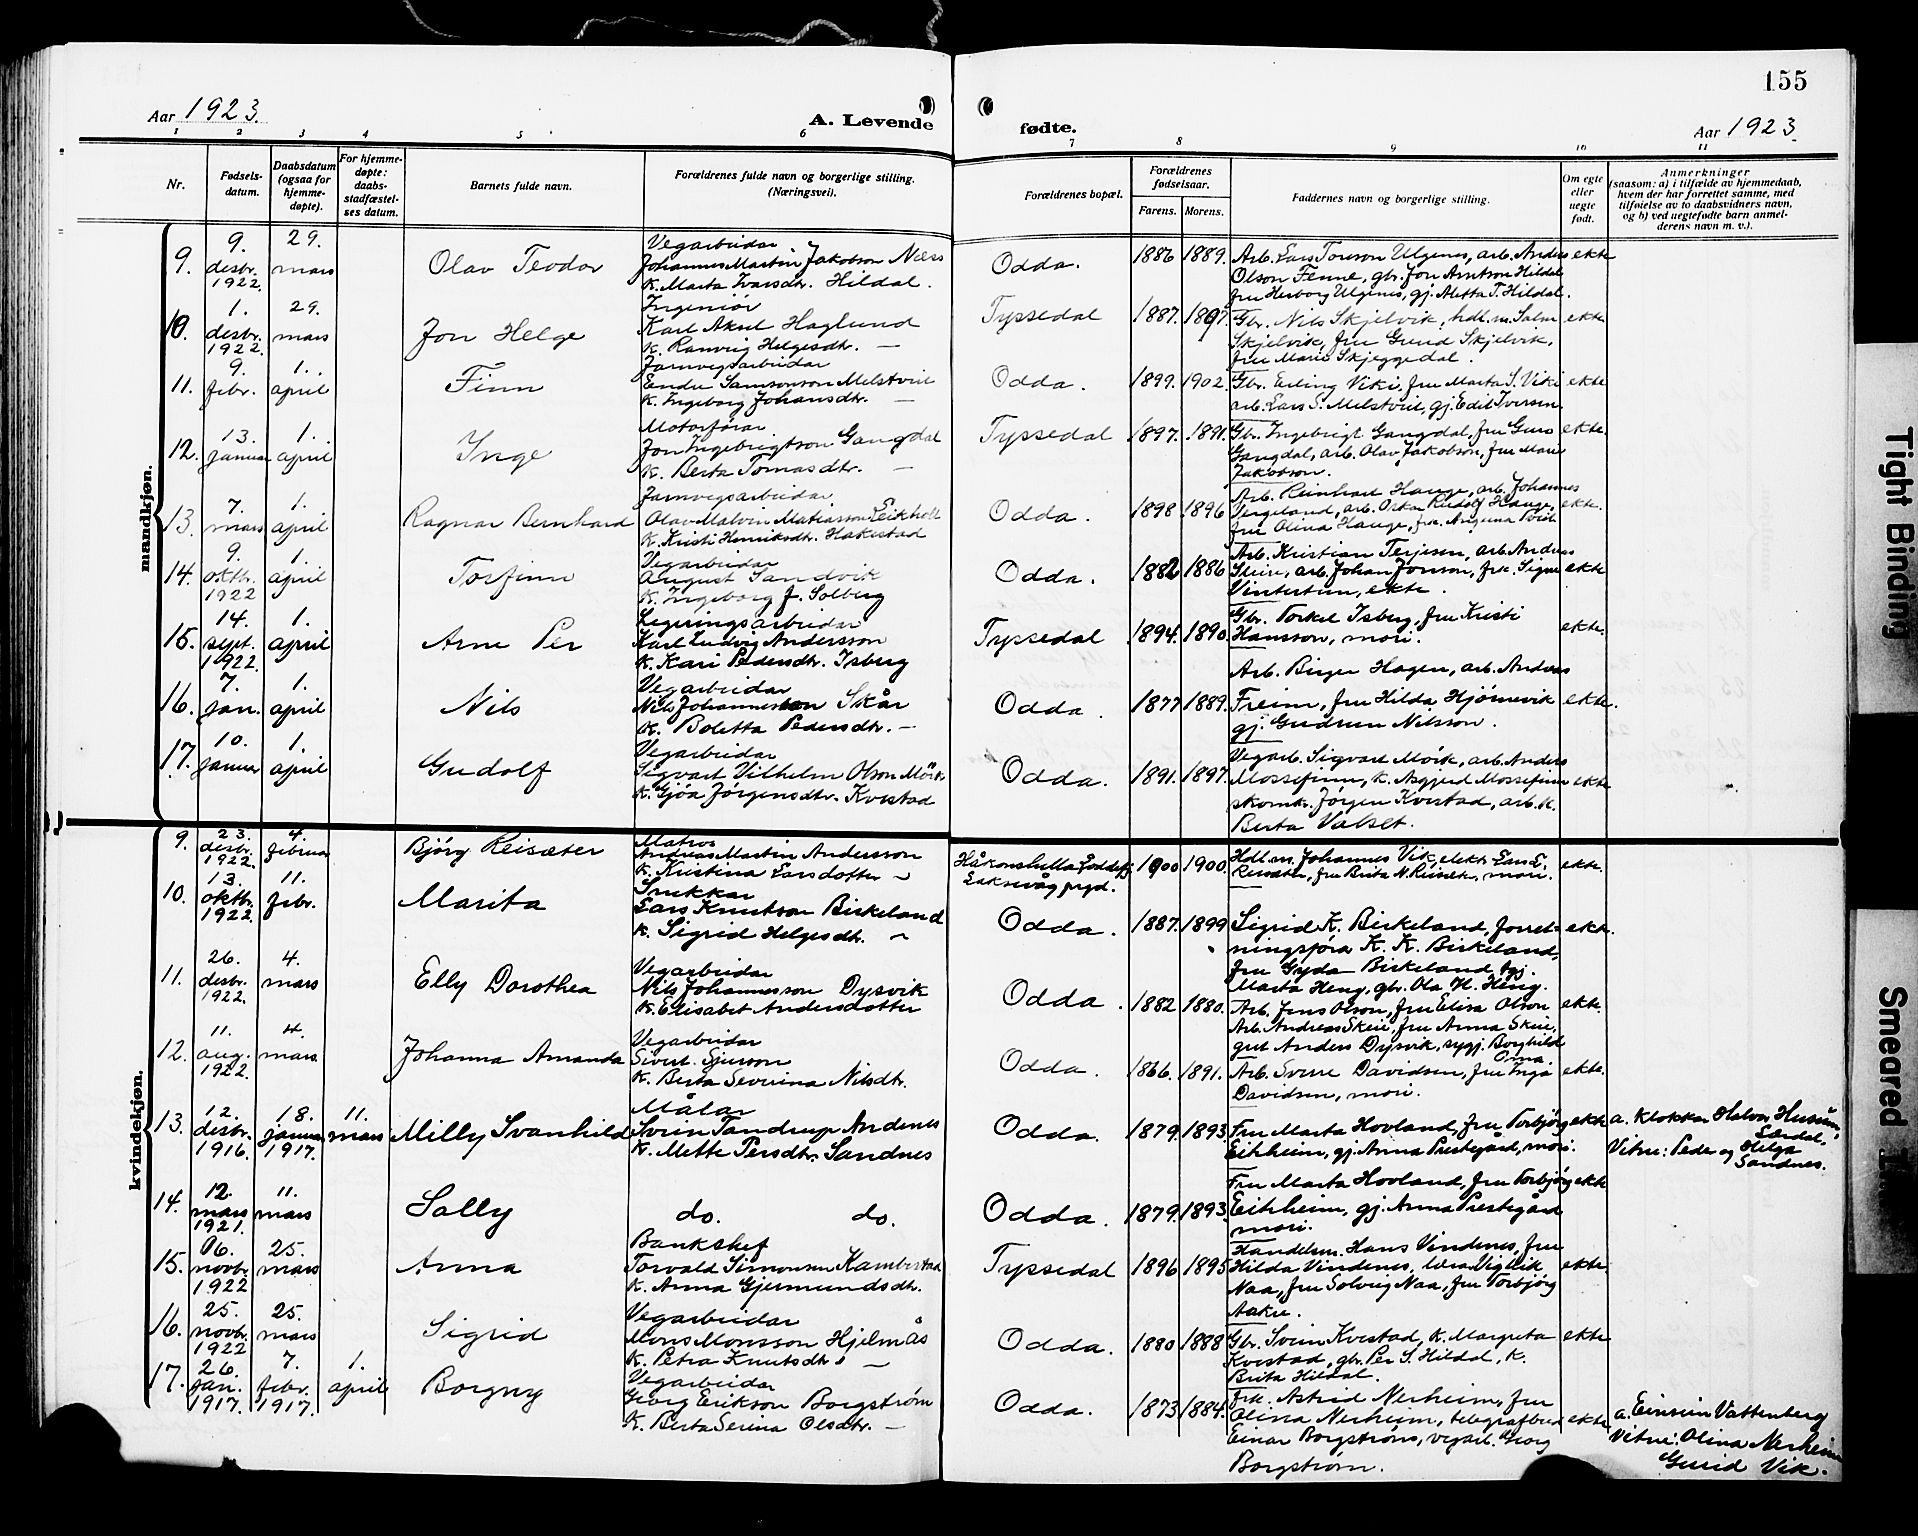 Aar 1923.
A. Levende
1 2 3 4 5 6
Nr.
Fødsels-
datum.
Daabsdatum
(ogsaa for
hjemme-
døpte).
For hjemme-
døpte:
daabs-
stadfæstel-
ses datum.
Barnets fulde navn.
Forældrenes fulde navn og borgerlige stilling.
(Næringsvei).
155
fødte.
Aar 1923
7 8 9 10 11
Forældrenes bopæl.
Forældrenes
fødselsaar.
Farens. Morens.
Faddernes navn og borgerlige stilling.
Om egte
eller
uegte
født.
Anmerkninger
(saasom: a) i tilfælde av hjemmedaab,
hvem der har forrettet samme, med
tilføielse av to daabsvidners navn,
og b) ved uegtefødte barn anmel-
derens navn m. v.).
mandkjøn.
9. 9. desbr. 1922. 29. mars Olav Teodor
Vegarbeidar
Johannes Martin Jakobson Næss
k. Marta Ivarsdtr. Hildal.
Odda. 1886 1889.
Arb. Lars Tonson Ulgenes, arb. Anders
Olson Fenne, gbr. Jon Arntson Hildal
fru Herborg Ulgenes, gj. Aletta T. Hildal.
ekte
10. 1. desbr. 1922. 29. mars Jon Helge
Ingeniør
Karl Aksel Haglund
k. Ranveig Helgesdtr. —
Tyssedal 1887. 1897.
Gbr. Nils Skjelvik, hdl.m. Salm
Skjelvik, fru Gurid Skjelvik,
fru Marie Skjeggedal.
ekte
11. 9. febr. 1. april Finn
Jarnvegsarbeidar
Endre Samsonson Melstveit
k. Ingeborg Johansdtr. —
Odda. 1899. 1902.
Gbr. Erling Viki, fru Marta S. Viki
arb. Lars S. Melstveit, gj. Edit Iversen.
ekte
12. 13. januar 1. april Inge
Motorførar
Jon Ingebrigtson Gangdal
k. Berta Tomasdtr. —
Tyssedal 1897. 1891.
Gbr. Ingebrigt Gangdal, fru Guro
Gangdal, arb. Olav Jakobson, fru Marie
Jakobson.
ekte.
13. 7. mars 1. april Ragnar Bernhard
Jarnvegsarbeidar
Olav Malvin Matiasson Leikholt
k. Kristi Henriksdtr. Hakestad
Odda. 1898 1896
Arb. Reinhart Hauge, arb. Johannes
Vergeland, arb. Oskar Rudolf Hauge,
fru Olina Hauge, frk.
ekte.
14. 9. oktbr. 1922 1. april Torfinn
Vegarbeidar
August Sandvik
k. Ingeborg J. Solberg
Odda. 1882 1886
Arb. Kristian Terjesen, arb. Anders
Skeie, arb. Johan Jonson, frk. Signe
Vintertun, ekte.
ekte
15. 14. sept. 1922. 1. april Arne Per
Legeringsarbeidar
Karl Ludvig Andersson
k. Kari Pedersdtr. Isberg
Tyssedal 1894. 1890.
Gbr. Torkel Isberg, fru Kristi
Hansson, mori.
ekte.
16. 7. jan. 1. april Nils
Vegarbeidar
Nils Johannesson Skår
k. Boletta Pedersdtr. —
Odda. 1877 1889.
Arb. Birger Hagen, arb. Anders
Freim, fru Hilda Hjørnevik
gj. Gudrun Nilsson.
ekte.
17. 10. januar 1. april Gudolf
Vegarbeidar
Sigvart Vilhelm Olson Mörk
k. Gjøa Jørgensdtr. Kvestad
Odda. 1891. 1897.
Vegarb. Sigvart Mörk, arb. Anders
Mossefinn, k. Asgjerd Mossefinn
skomk. Jørgen Kvestad, arb. k.
Berta Valset.
ekte
kvindekjøn.
9. 23. desbr. 1922. 4. februar Bjørg Reisæter
Matros
Andreas Martin Andersson
k. Kristina Larsdotter —
Håkonshella
Laksevåg pgd. 1900 1900.
Hdl.m. Johannes Vik, elektr. Lars L.
Reisæter, fru Brita N. Reisæt., mori.
ekte.
10. 13. oktbr. 1922 11. febr. Marita
Snikkar
Lars Knutson Birkeland
k. Sigrid Helgesdtr. —
Odda. 1887. 1899
Sigrid K. Birkeland, forret-
ningsføra K. K. Birkeland,
fru Gyda Birkeland, tgj.
Marta Heng, gbr. Ola H. Heng.
ekte.
11. 26. desbr. 1922. 4. mars Elly Dorothea
Vegarbeidar
Nils Johannesson Dysvik
k. Elisabet Andersdotter
Odda. 1882 1880.
Arb. Jens Olson, fru Elisa Olson
Arb. Andreas Skeie, fru Anna Skeie,
gut Anders Dysvik, sygj. Borghild
Oma.
ekte
12. 11. aug. 1922. 4. mars. Johanna Amanda
Vegarbeidar
Sivert Sjurson
k. Berta Severina Nilsdtr.
Odda. 1866. 1891.
Arb. Sverre Davidsen, fru Inga
Davidsen, mori.
ekte.
13. 12. desbr. 1916. 18. januar 1917. 11. mars Milly Svanhild
Målar
Svein Tandrup Andenes
k. Mette Persdtr. Sandnes
Odda. 1879. 1893.
Fru Marta Hovland, fru Torbjörg
Eitrheim, gj. Anna Prestegård, mori.
ekte
a. Klokkar Halvor Husum,
Lærdal.
Vitne: Peder og Helga
Sandnes.
14. 12. mars 1921. 11. mars Solly
do. do.
Odda. 1879. 1893.
Fru Marta Hovland, fru Torbjörg
Eitrheim, gj. Anna Prestegård
mori.
ekte
15. 06. novbr. 1922 25. mars Anna
Bankshef
Torvald Simonsen Kambestad
k. Anna Gjermundsdtr.
Tyssedal 1896 1895
Handelsm. Hans Vindenes, fru
Hilda Vindenes, lærar Vigleik
Naa, fru Solveig Naa, fru Torbjörg
Aakre.
ekte.
16. 25. novbr. 1922 25. mars Sigrid
Vegarbeidar
Mons Monsson Hjelmås
k. Petra Knutsdtr. —
Odda. 1880 1888
Gbr. Svein Kvestad, k. Margreta
Kvestad, gbr. Per S. Hildal, k.
Brita Hildal.
ekte
17. 26. jan. 1917. 7. febr. 1917. 1. april Borgny
Vegarbeidar
Georg Erikson Borgström
k. Berta Serina Olsdtr. —
Odda. 1873 1884.
Frk. Astrid Nerheim, fru
Olina Nerheim, telegrafbud
Einar Borgström, vegarb. Georg
Borgström.
ekte
a. Einsein Vattenberg
Vitne: Olina Nerheim
Gurid Vik.
Tight Binding
Smeared